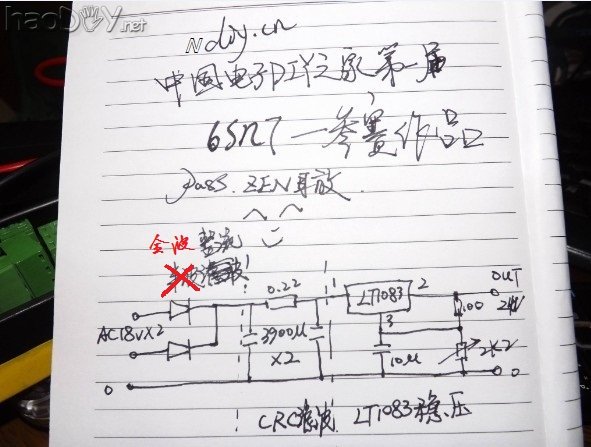 haoDIY.net
Ndiy.cn
中国电子DIY之家第一届
6SN7一参赛作品
Pass ZEN耳放
全波整流
0.22
LT1083
2
OUT
24V
3
100
AC18V×2
3900u
×2
10u
2K2
0
0
CRC滤波 LT1083稳压